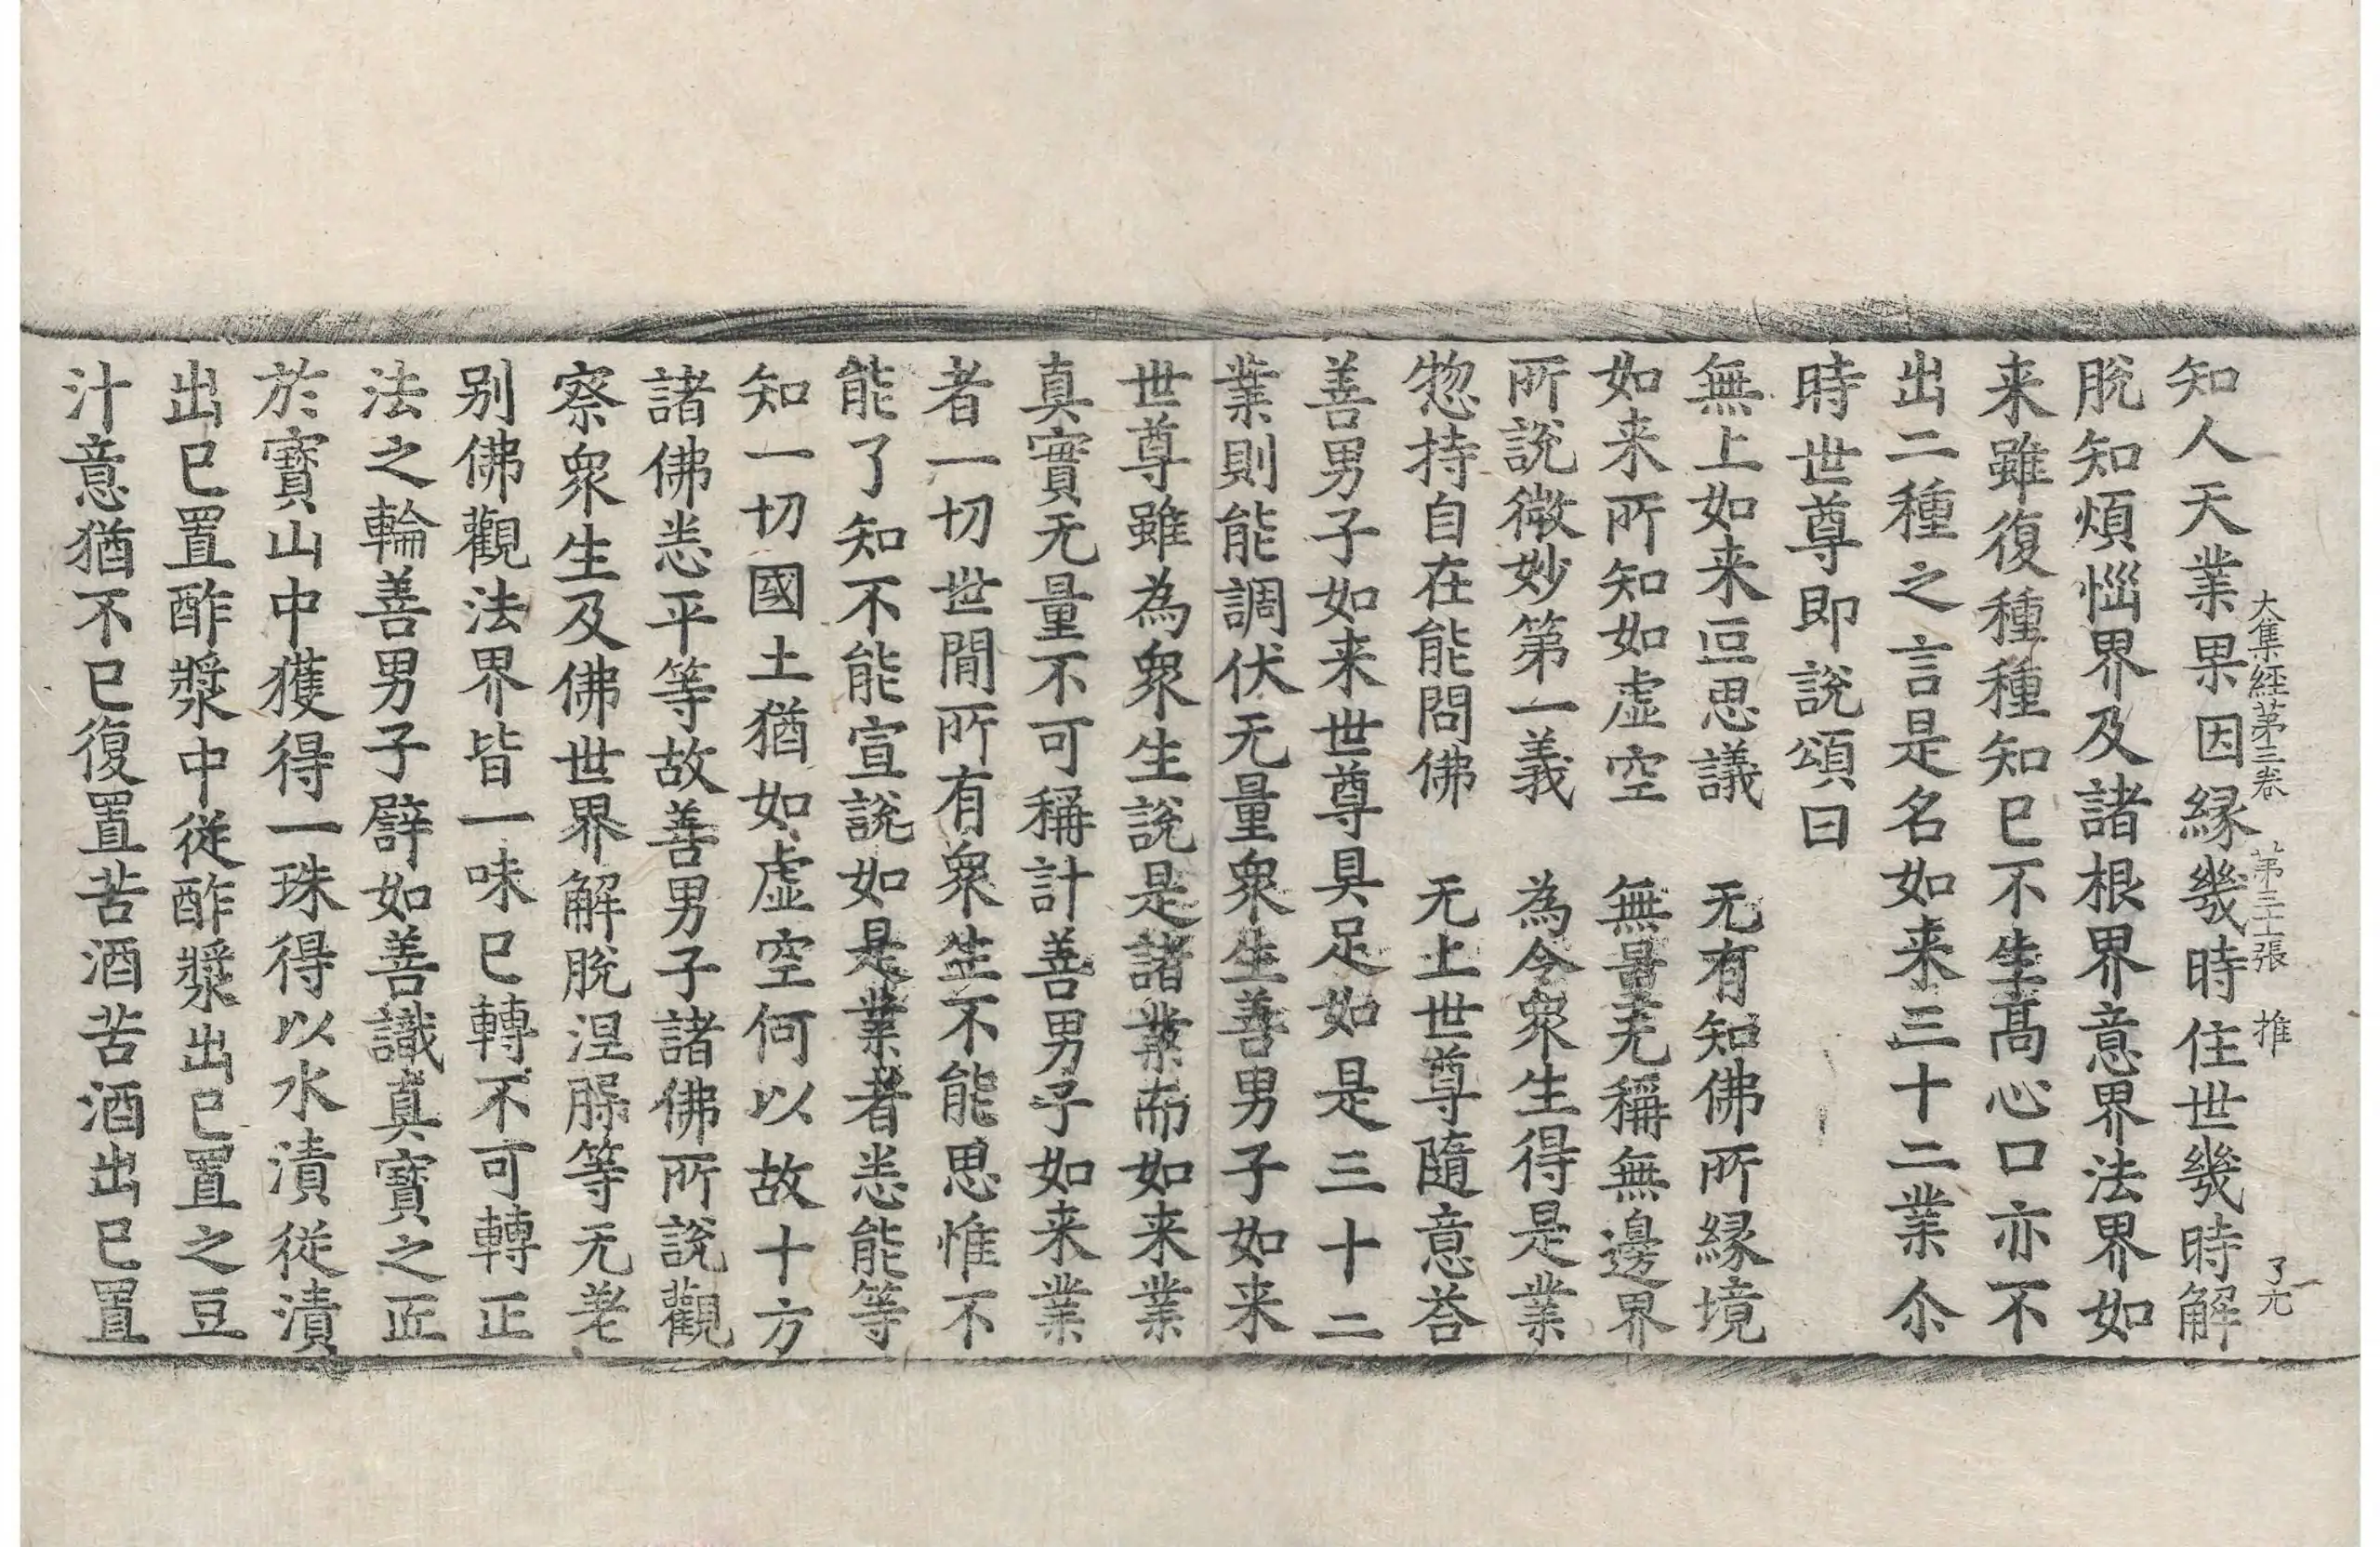 大集經第三卷　第三十張　推　了元
知人天業果因縁幾時住世幾時解
脫知煩惱界及諸根界意界法界如
来雖復種種知已不生髙心口亦不
出二種之言是名如来三十二業尒
時世尊即說頌曰
無上如来叵思議　无有知佛所縁境
如来所知如虛空　無量无稱無邊界
所說微妙第一義　為令衆生得是業
惣持自在能問佛　无上世尊隨意荅
善男子如来世尊具足如是三十二
業則能調伏无量衆生善男子如来
世尊雖為衆生說是諸業而如来業
真實无量不可稱計善男子如来業
者一切世閒所有衆生不能思惟不
能了知不能宣說如是業者悉能等
知一切國土猶如虛空何以故十方
諸佛悉平等故善男子諸佛所說觀
察衆生及佛世界解脫涅槃等无差
别佛觀法界皆一味已轉不可轉正
法之輪善男子譬如善識真寶之匠
於寶山中獲得一珠得以水漬從漬
出已置酢漿中從酢漿出已置之豆
汁意猶不已復置苦酒苦酒出已置